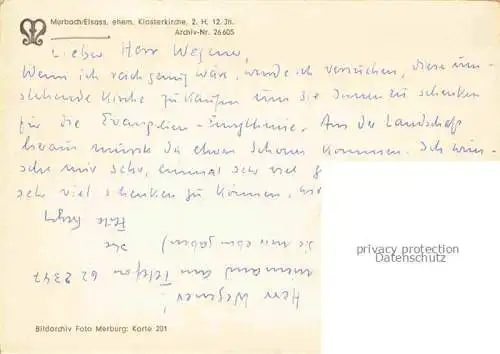 Murbach/Elsass, ehem. Klosterkirche, 2. H. 12. Jh.
Archiv-Nr. 26605
Lieber Herr Wegener,
Wenn ich reich genug wäre, würde ich versuchen, diese um-
stehende Kirche zu kaufen um sie Ihnen zu schenken
für die Evangelien-Eurythmie. Aus der Landschaft
heraus müsste da etwas Schönes kommen. Ich wün-
sche mir sehr, einmal sehr viel
sehr viel schenken zu können,
privacy protection
www.oldthing.de
Herr Wegener!
niemand am Telefon 62 2347
die mir eben gaben)
Ihr
Bildarchiv Foto Marburg: Karte 201